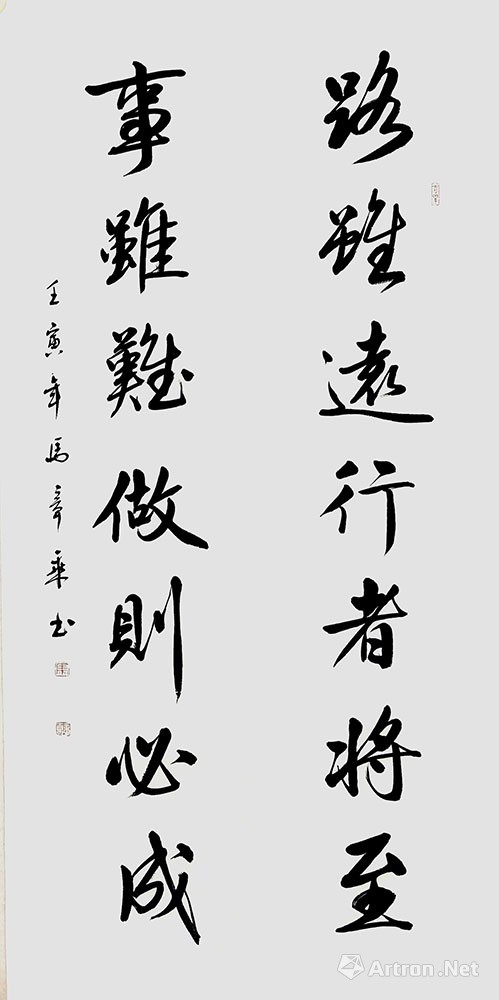 路雖遠行者將至
事雖難做則必成
壬寅年馬章乘書
Artron.Net